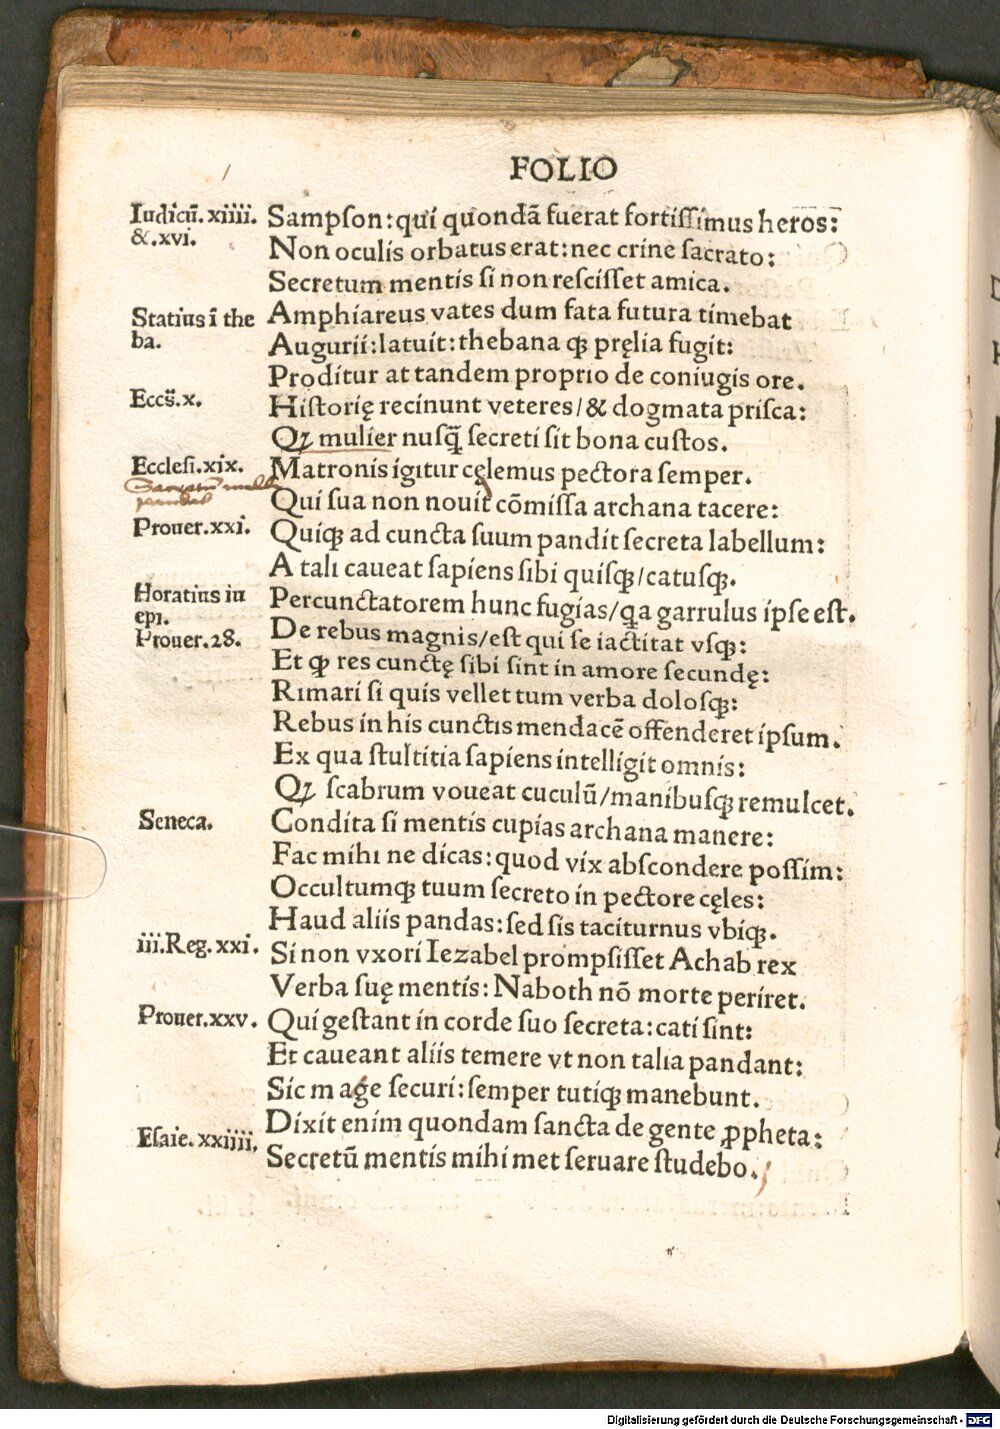 FOLIO
Iudicū.xiiii.
&.xvi.
Sampſon:qui quondā fuerat fortiſſimus heros:
Non oculis orbatus erat:nec crine ſacrato:
Secretum mentis ſi non reſciſſet amica.
Statius ī the
ba.
Amphiareus vates dum fata futura timebat
Augurii:latuit:thebana qꝫ pręlia fugit:
Proditur at tandem proprio de coniugis ore.
Eccs̄.x.
Hiſtorię recinunt veteres/& dogmata priſca:
Qꝫ mulier nuſq̄ ſecreti ſit bona cuſtos.
Eccleſi.xix.
Matronis igitur cęlemus pectora ſemper.
Qui ſua non nouit cōmiſſa archana tacere:
Prouer.xxi.
Quiqꝫ ad cuncta ſuum pandit ſecreta labellum:
A tali caueat ſapiens ſibi quiſqꝫ/catuſqꝫ.
Horatius in
epi.
Percunctatorem hunc fugias/q̄a garrulus ipſe eſt.
Prouer.28.
De rebus magnis/eſt qui ſe iactitat vſqꝫ:
Et ꝙ res cunctę ſibi ſint in amore ſecundę:
Rimari ſi quis vellet tum verba doloſqꝫ:
Rebus in his cunctis mendacē offenderet ipſum.
Ex qua ſtultitia ſapiens intelligit omnis:
Qꝫ ſcabrum voueat cuculū/manibuſqꝫ remulcet.
Seneca.
Condita ſi mentis cupias archana manere:
Fac mihi ne dicas:quod vix abſcondere poſſim:
Occultumqꝫ tuum ſecreto in pectore cęles:
Haud aliis pandas:ſed ſis taciturnus vbiqꝫ.
iii.Reg.xxi.
Si non vxori Iezabel prompſiſſet Achab rex
Verba ſuę mentis:Naboth nō morte periret.
Prouer.xxv.
Qui geſtant in corde ſuo ſecreta:cati ſint:
Et caueant aliis temere vt non talia pandant:
Sic m age ſecuri:ſemper tutiqꝫ manebunt.
Dixit enim quondam ſancta de gente ꝓpheta:
Eſaie.xxiiii.
Secretū mentis mihi met ſeruare ſtudebo.
Digitalisierung gefördert durch die Deutsche Forschungsgemeinschaft - DFG